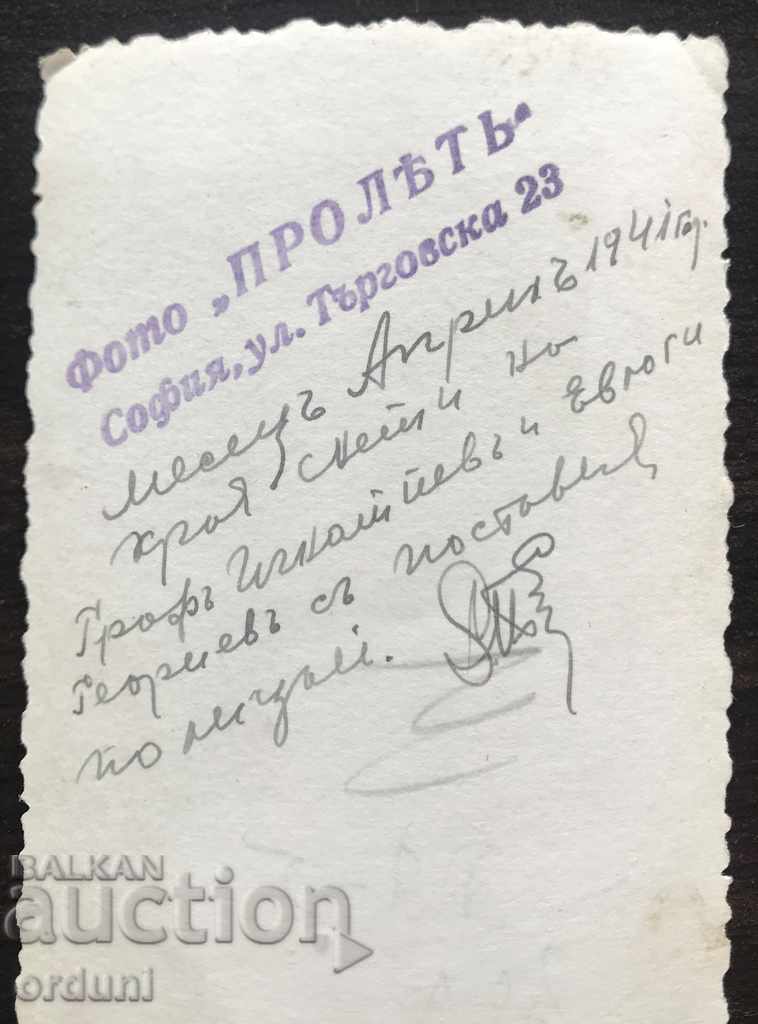 Фото „ПРОЛѢТЬ"
София, ул. Търговска 23
месецъ Априлъ 1941 год.
края на
Графъ Игнатиевъ и Евлоги
Георгиевъ съ поставенъ
полицай.
BALKAN
auction
orduni